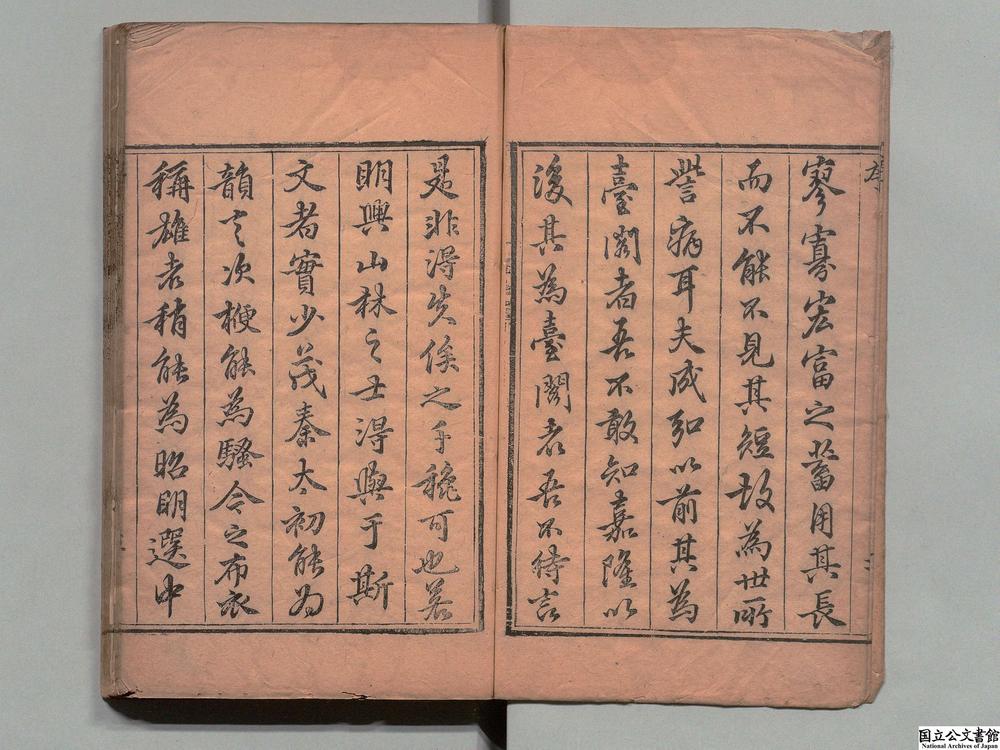 序
寥寡宏富之蓄用其長
而不能不見其短故為世所
訾病耳夫成弘以前其為
臺閣者吾不敢知嘉隆以
後其為臺閣者吾不待言
是非得失俟之千穐可也若
明興山林之士得與于斯
文者實少茂秦太初能為
韻言次楩能為騷令之布衣
稱雄者稍能為昭明選中
国立公文書館
National Archives of Japan